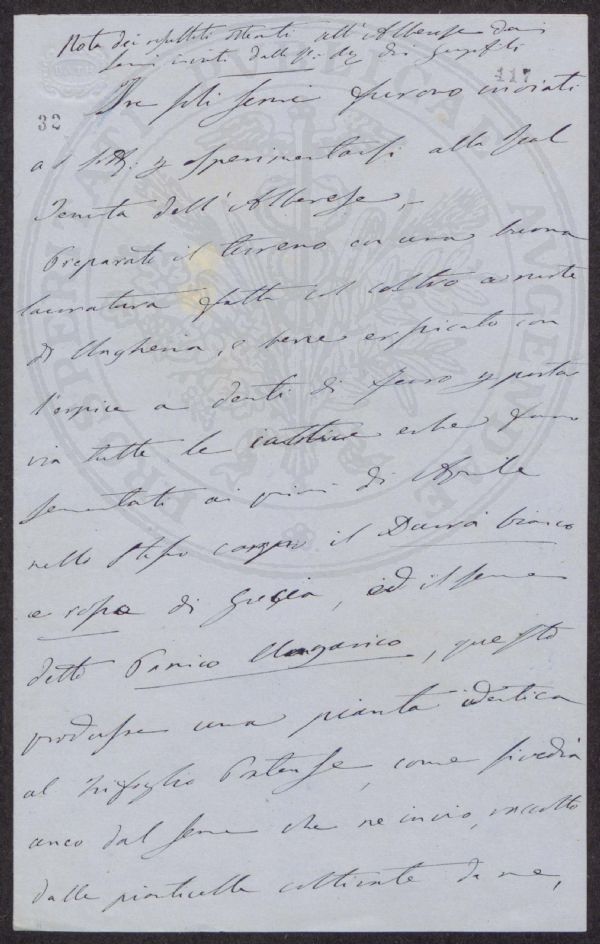 Nota dei resultati ottenuti all'Alberese dai
semi inviati dalla dei Georgofili
117
32
Tre semi furono inviati
a sperimentarsi alla Real
Tenuta dell'Alberese,
Preparati il terreno con una buona
lavoratura fatta col coltro a ruote
di Ungheria, e bene erpicato con
l'erpice a denti di ferro p portar
via tutte le cattive erbe furo
sementati ai primi di Aprile
nello stesso campo il Durrà bianco
e rosso di Grecia, ed il seme
detto Panico Ungarico, questo
produsse una pianta identica
al Trifoglio Pratense, come si vedrà
anco dal seme che ne invio, raccolto
dalle pianticelle coltivate da me,